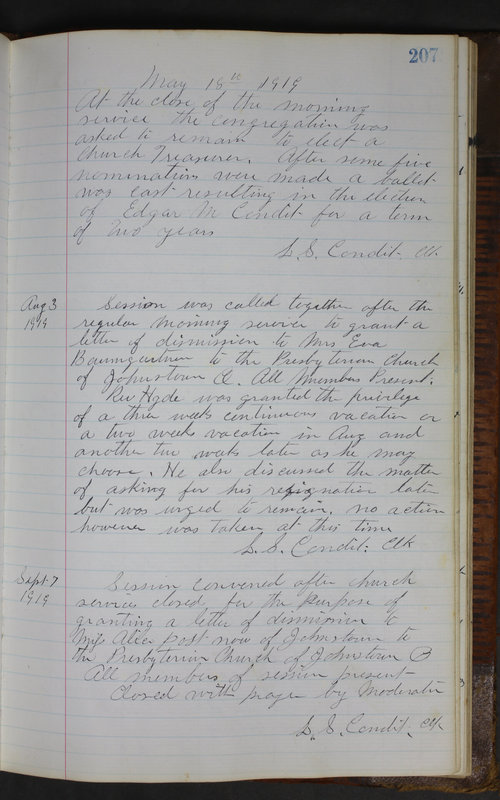 207
May 18th 1919
At the close of the morning
service the congregation was
asked to remain to elect a
Church Treasurer. After some five
nominations were made a ballot
was cast resulting in the election
of Edgar M Condit for a term
of two years
S. S. Condit, Clk
Aug 3
1919
Session was called together after the
regular morning service to grant a
letter of dismission to Mrs Eva
Baumgartner to the Presbyterian Church
of Johnstown O. All Members Present.
Rev Hyde was granted the privilege
of a three weeks continuous vacation or
a two weeks vacation in Aug and
another two weeks later as he may
choose. He also discussed the matter
of asking for his resignation later
but was urged to remain, no action
however was taken at this time
S. S. Condit: Clk
Sept 7
1919
Session convened after church
service closed for the purpose of
granting a letter of dismission to
Miss Alice Post now of Johnstown to
the Presbyterian Church of Johnstown O
All members of session present
Closed with prayer by Moderator
S. S. Condit, Clk